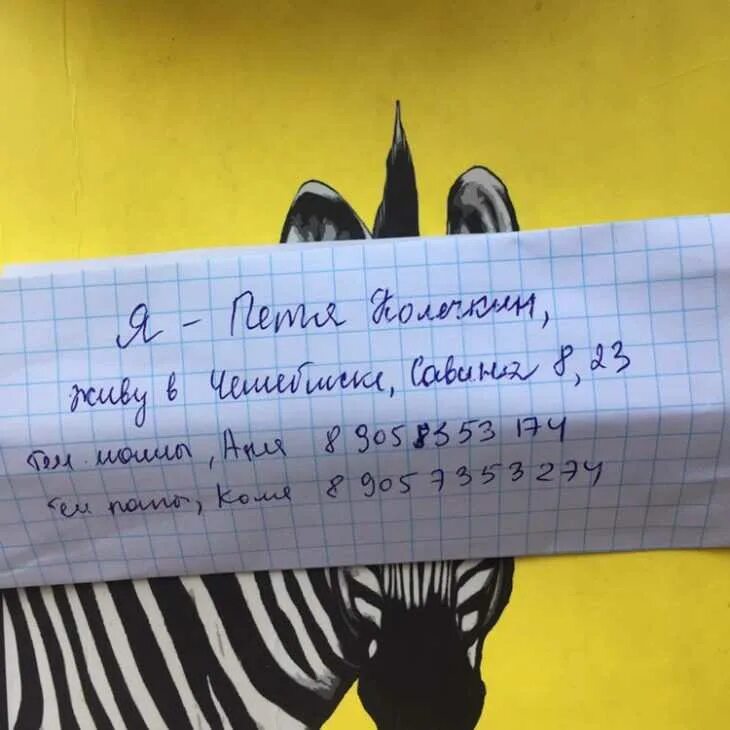 Я - Петя Колечкин,
живу в Челябинске, Савина 8, 23
тел. мамы, Аня 8 905 8353 174
тел папы, Коля 8 905 7353274